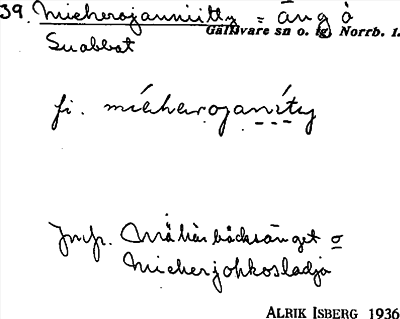 39. Micherojanniitty = äng å
Gällivare sn o. lg. Norrb. l.
Snabbat
fi. mícherojaníty
Jmfr. Måhärbäcksänget o
Micherjohkosladja
ALRIK ISBERG 1936